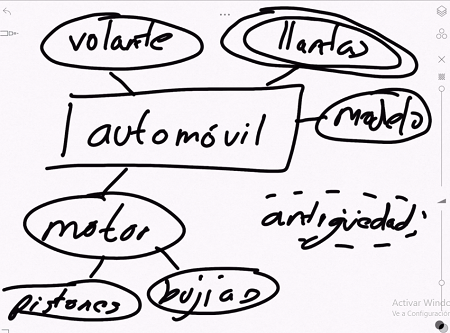 volante
llantas
automóvil
modelo
motor
antigüedad
pistones
bujias
Activar Windo
Ve a Configuración